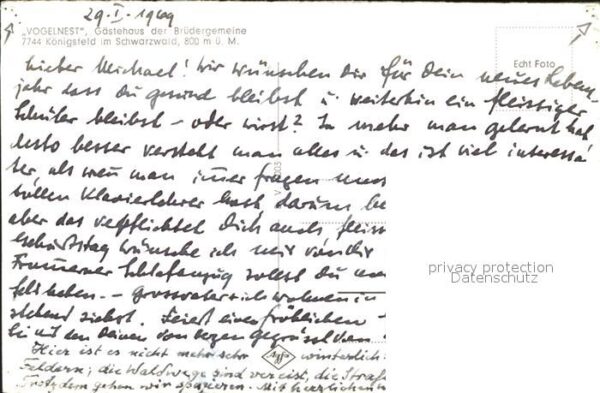 29.I.1969
„VOGELNEST", Gästehaus der Brüdergemeine
7744 Königsfeld im Schwarzwald, 800 m ü. M.
Echt Foto
Lieber Michael! Wir wünschen Dir für Dein neues Lebens-
jahr dass Du gesund bleibst u. weiterhin ein fleissiger
Schüler bleibst – oder wirst? Je mehr man gelernt hat
desto besser versteht man alles u. das ist viel interessan
ter, als wenn man immer fragen muss
tollen Klavierlehrer hast, darum be
aber das verpflichtet Dich auch fleiss
Geburtstag wünsche ich mir von Dir
Schlafanzug sollst Du
haben. – Grossvater + ich wohnen in
stehend siehst. Feiert einen fröhlichen
sei mit den Deinen von Herzen gegrüsst von
Hier ist es nicht mehr sehr winterlich
Feldern; die Waldwege sind vereist, die Straß
Trotzdem gehen wir spazieren. Mit herzlichen
Agfa
privacy protection
Datenschutz